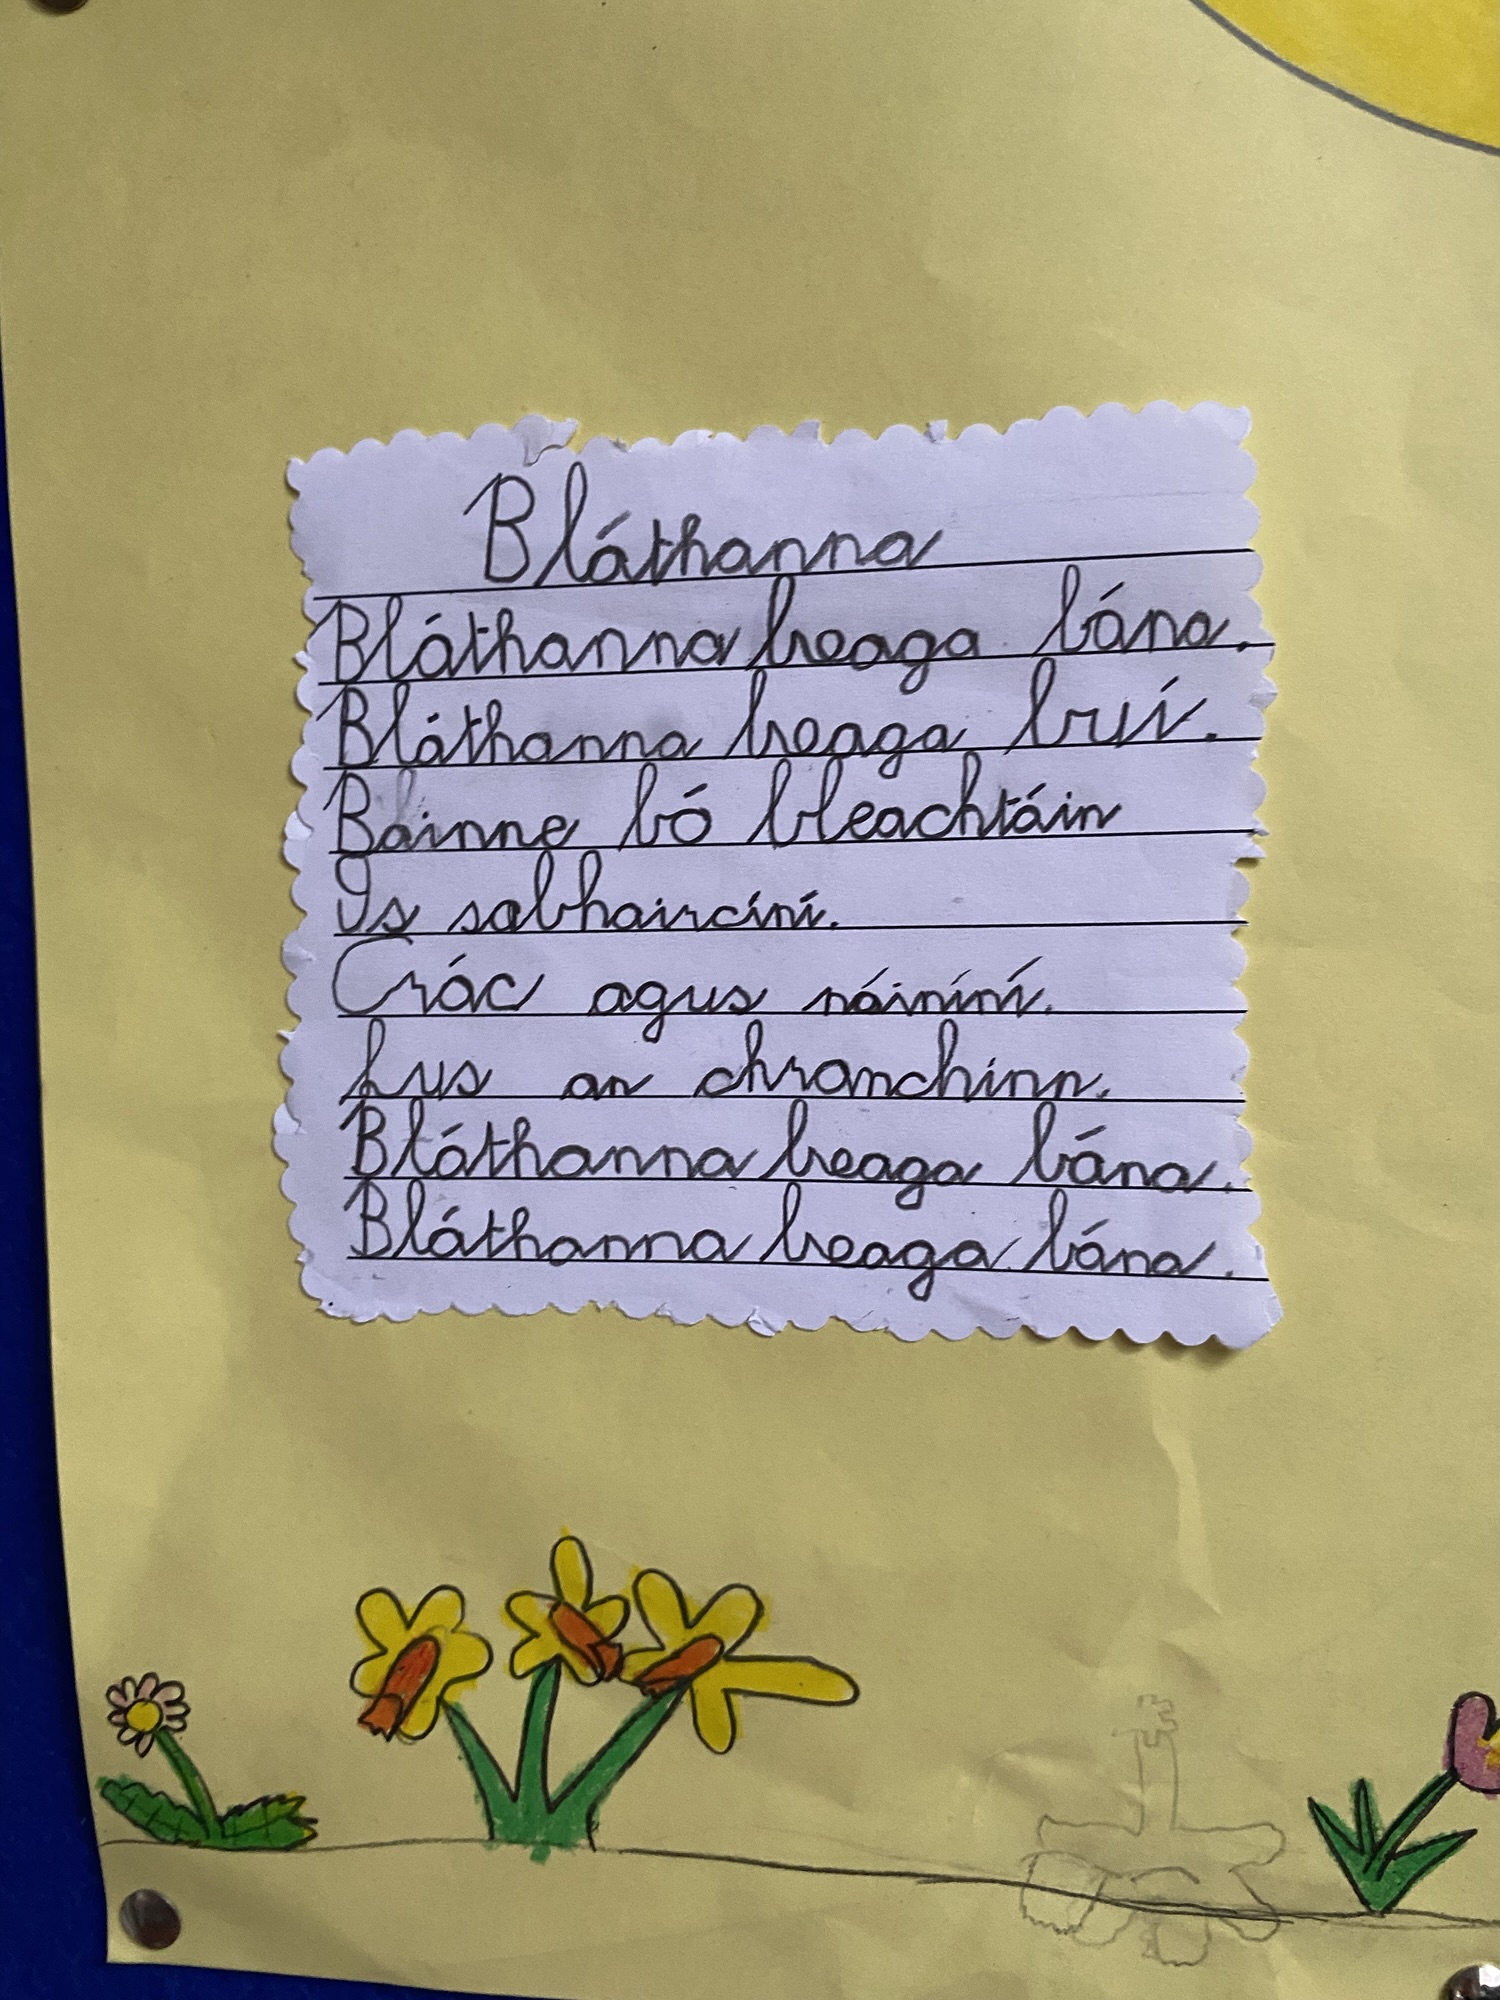 Bláthanna
Bláthanna beaga bána.
Bláthanna beaga buí.
Bainne bó bleachtáin
Is sabhaircíní.
Crác agus nóiníní.
Lus an chromchinn.
Bláthanna beaga bána.
Bláthanna beaga bána.